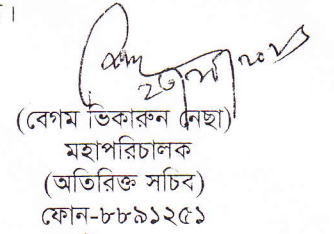 ।
(বেগম ভিকারুন নেছা)
মহাপরিচালক
(অতিরিক্ত সচিব)
ফোন-৮৮৯১২৫১